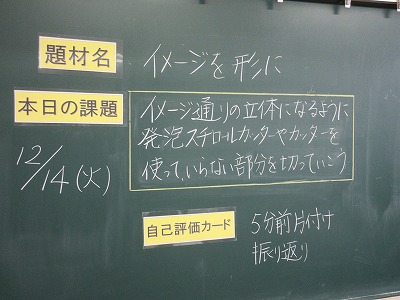 題材名 イメージを形に
本日の課題
イメージ通りの立体になるように
発泡スチロールカッターやカッターを
使って、いらない部分を切っていこう
12/14(火)
自己評価カード 5分前片付け
振り返り